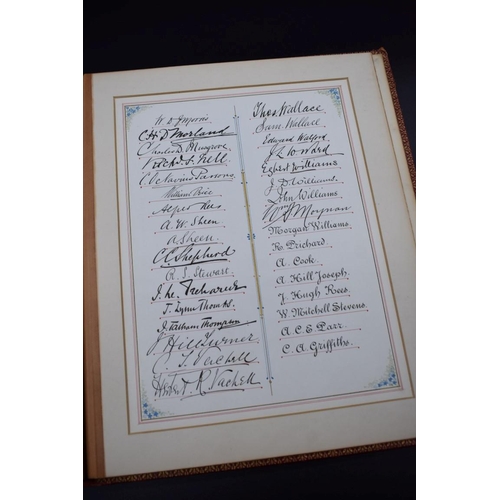 W. D. J. Morris
C. H. D. Morland
Charles D. Musgrove
Richd. S. Nell
C. Octavius Parsons
William Price
Rees
A. W. Sheen
A Sheen
C. E. Shepherd
R. S. Stewart
Richards
J. Lynn Thomas
J. Tatham Thompson
J Hill Turner
C. T. Vachell
Herbert R. Vachell
Thos. Wallace
Sam Wallace
Edward Walford
J L W Ward
Egbert Williams
J. D. Williams
John Williams
Moynan
Morgan Williams
R. Prichard
A. Cook
A Hill Joseph
J. Hugh Rees
W. Mitchell Stevens
A. C. E. Parr
C. A. Griffiths